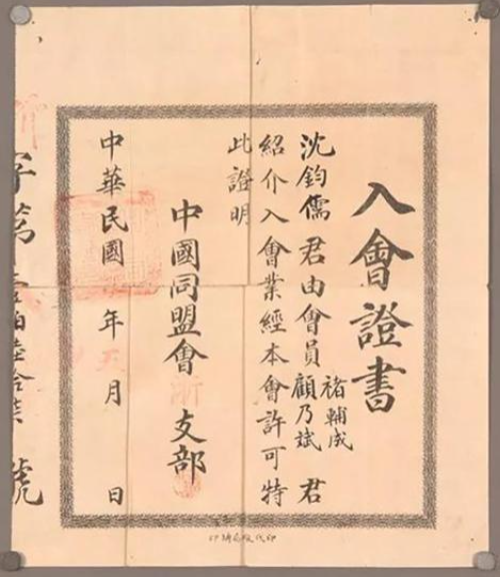 入會證書
沈鈞儒君由會員褚輔成
顧乃斌君
紹介入會業經本會許可特
此證明
中國同盟會浙支部
中華民國年月日
字第壹佰陸拾柒號